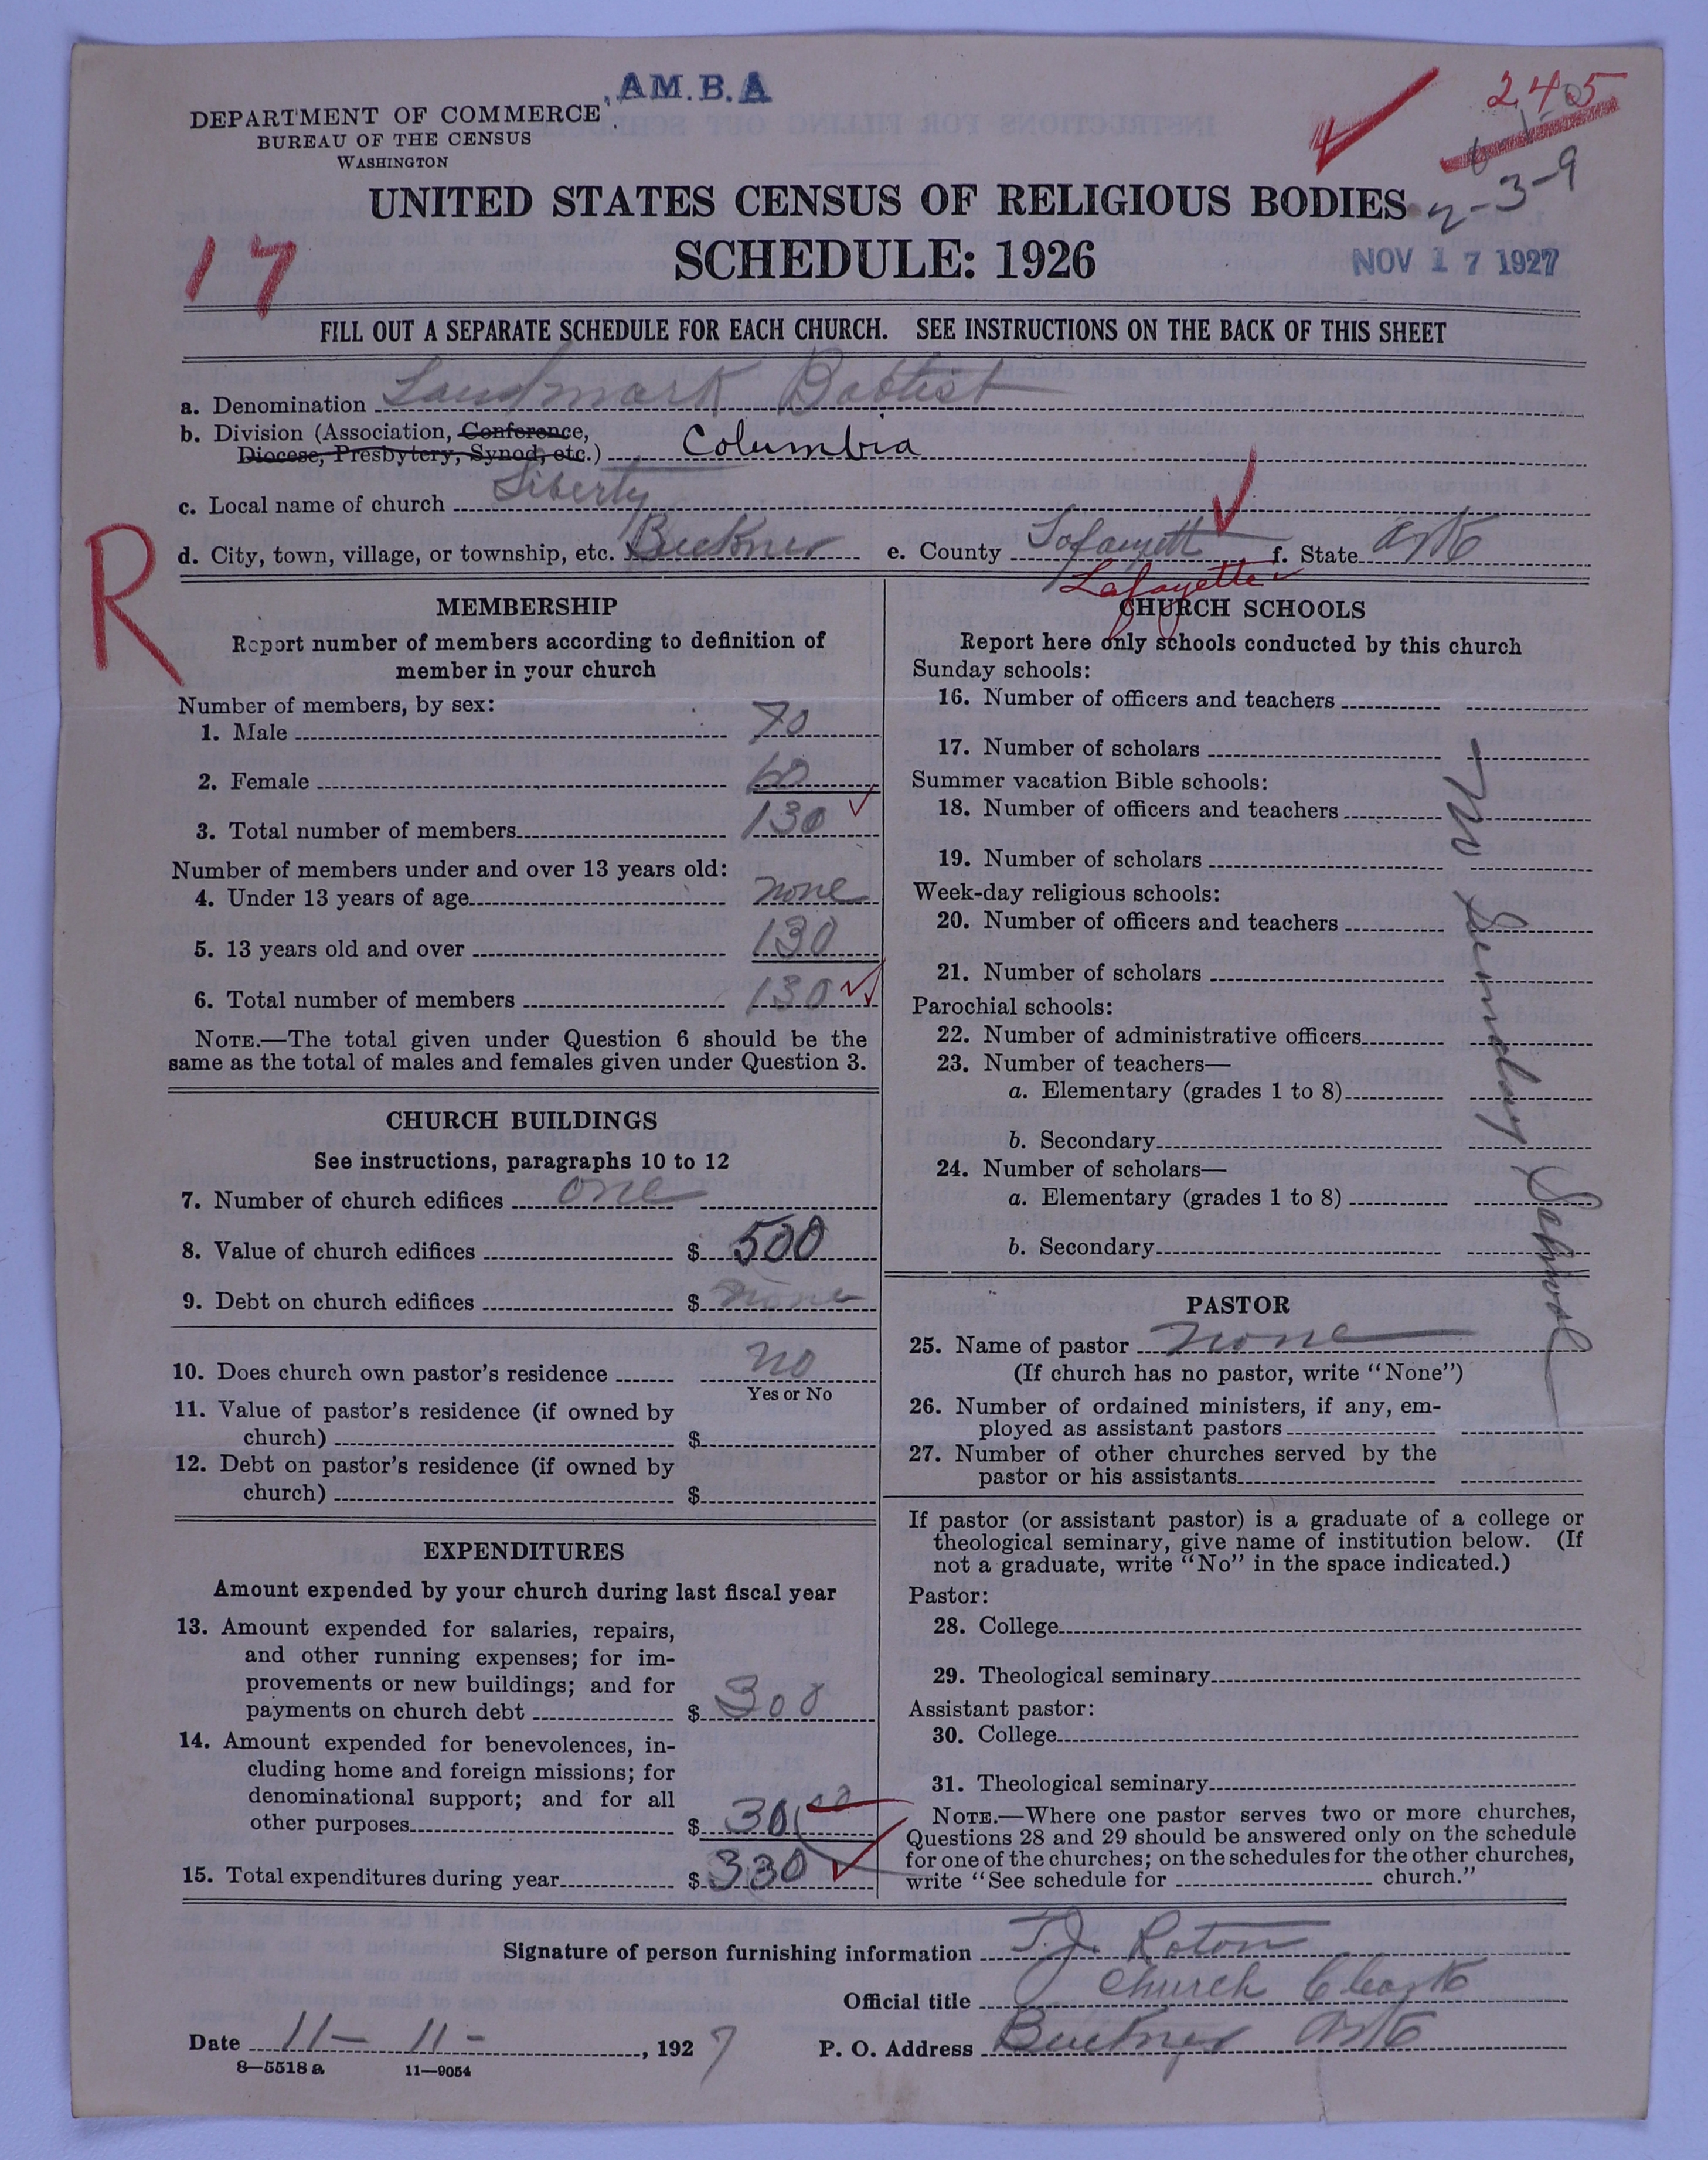 AM.B.A
DEPARTMENT OF COMMERCE
BUREAU OF THE CENSUS
WASHINGTON
245
2-3-9
UNITED STATES CENSUS OF RELIGIOUS BODIES
SCHEDULE: 1926
17
NOV 17 1927
FILL OUT A SEPARATE SCHEDULE FOR EACH CHURCH. SEE INSTRUCTIONS ON THE BACK OF THIS SHEET
a. Denomination Landmark Babtist
b. Division (Association, Conference,
Diocese, Presbytery, Synod, etc.) Columbia
c. Local name of church Liberty
d. City, town, village, or township, etc. Buckner e. County Lafayett f. State Ark
Lafayette
R
MEMBERSHIP
Report number of members according to definition of
member in your church
Number of members, by sex:
1. Male 70
2. Female 60
3. Total number of members 130
Number of members under and over 13 years old:
4. Under 13 years of age none
5. 13 years old and over 130
6. Total number of members 130
NOTE.—The total given under Question 6 should be the
same as the total of males and females given under Question 3.
CHURCH BUILDINGS
See instructions, paragraphs 10 to 12
7. Number of church edifices one
8. Value of church edifices $ 500
9. Debt on church edifices $ none
10. Does church own pastor's residence no
Yes or No
11. Value of pastor's residence (if owned by
church) $
12. Debt on pastor's residence (if owned by
church) $
EXPENDITURES
Amount expended by your church during last fiscal year
13. Amount expended for salaries, repairs,
and other running expenses; for im-
provements or new buildings; and for
payments on church debt $ 300
14. Amount expended for benevolences, in-
cluding home and foreign missions; for
denominational support; and for all
other purposes $ 30 00
15. Total expenditures during year $ 330
CHURCH SCHOOLS
Report here only schools conducted by this church
Sunday schools:
16. Number of officers and teachers
17. Number of scholars
Summer vacation Bible schools:
18. Number of officers and teachers
19. Number of scholars
Week-day religious schools:
20. Number of officers and teachers
21. Number of scholars
Parochial schools:
22. Number of administrative officers
23. Number of teachers—
a. Elementary (grades 1 to 8)
b. Secondary
24. Number of scholars—
a. Elementary (grades 1 to 8)
b. Secondary
No Sunday School
PASTOR
25. Name of pastor none
(If church has no pastor, write "None")
26. Number of ordained ministers, if any, em-
ployed as assistant pastors
27. Number of other churches served by the
pastor or his assistants
If pastor (or assistant pastor) is a graduate of a college or
theological seminary, give name of institution below. (If
not a graduate, write "No" in the space indicated.)
Pastor:
28. College
29. Theological seminary
Assistant pastor:
30. College
31. Theological seminary
NOTE.—Where one pastor serves two or more churches,
Questions 28 and 29 should be answered only on the schedule
for one of the churches; on the schedules for the other churches,
write "See schedule for church."
Signature of person furnishing information T.J. Roton
Official title Church Clerk
Date 11-11-, 1927 P. O. Address Buckner Ark
8—5518 a 11—9054